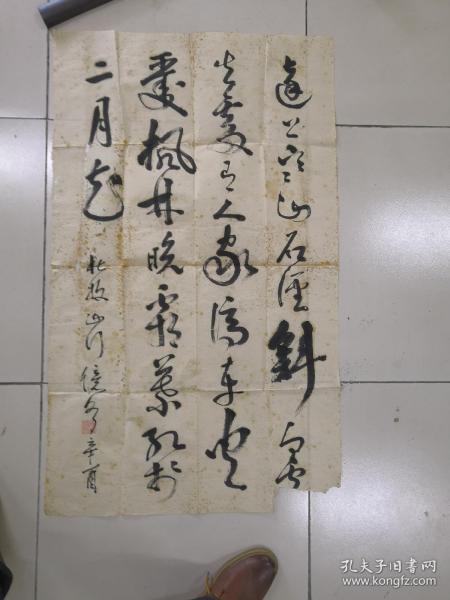 遠上寒山石徑斜白雲
生處有人家停車坐
愛楓林晚霜葉紅於
二月花
杜牧山行 辛酉
孔夫子旧书网
www.kongfz.com